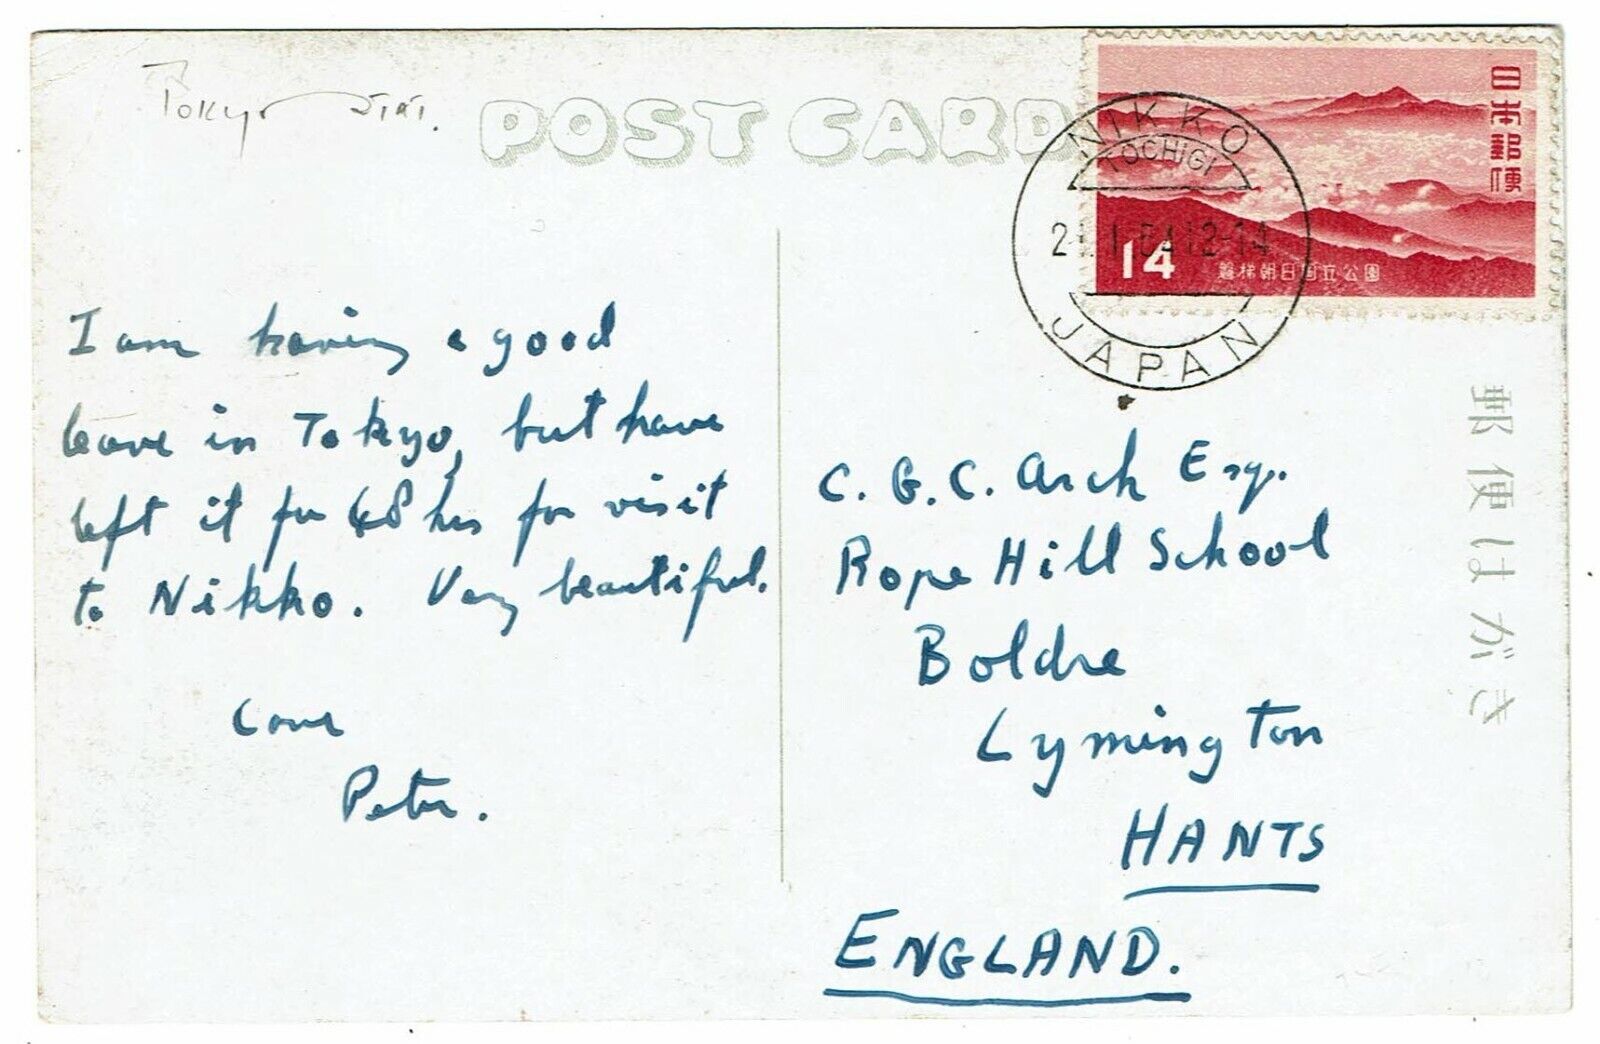 Tokyo
POST CARD
日本郵便
14
磐梯朝日国立公園
NIKKO
TOCHIGI
12-14
JAPAN
I am having a good
leave in Tokyo, but have
left it for 48 hrs for visit
to Nikko. Very beautiful.
Love
Peter.
C. G. C. Arch Esq.
Rope Hill School
Boldre
Lymington
HANTS
ENGLAND.
郵便はがき